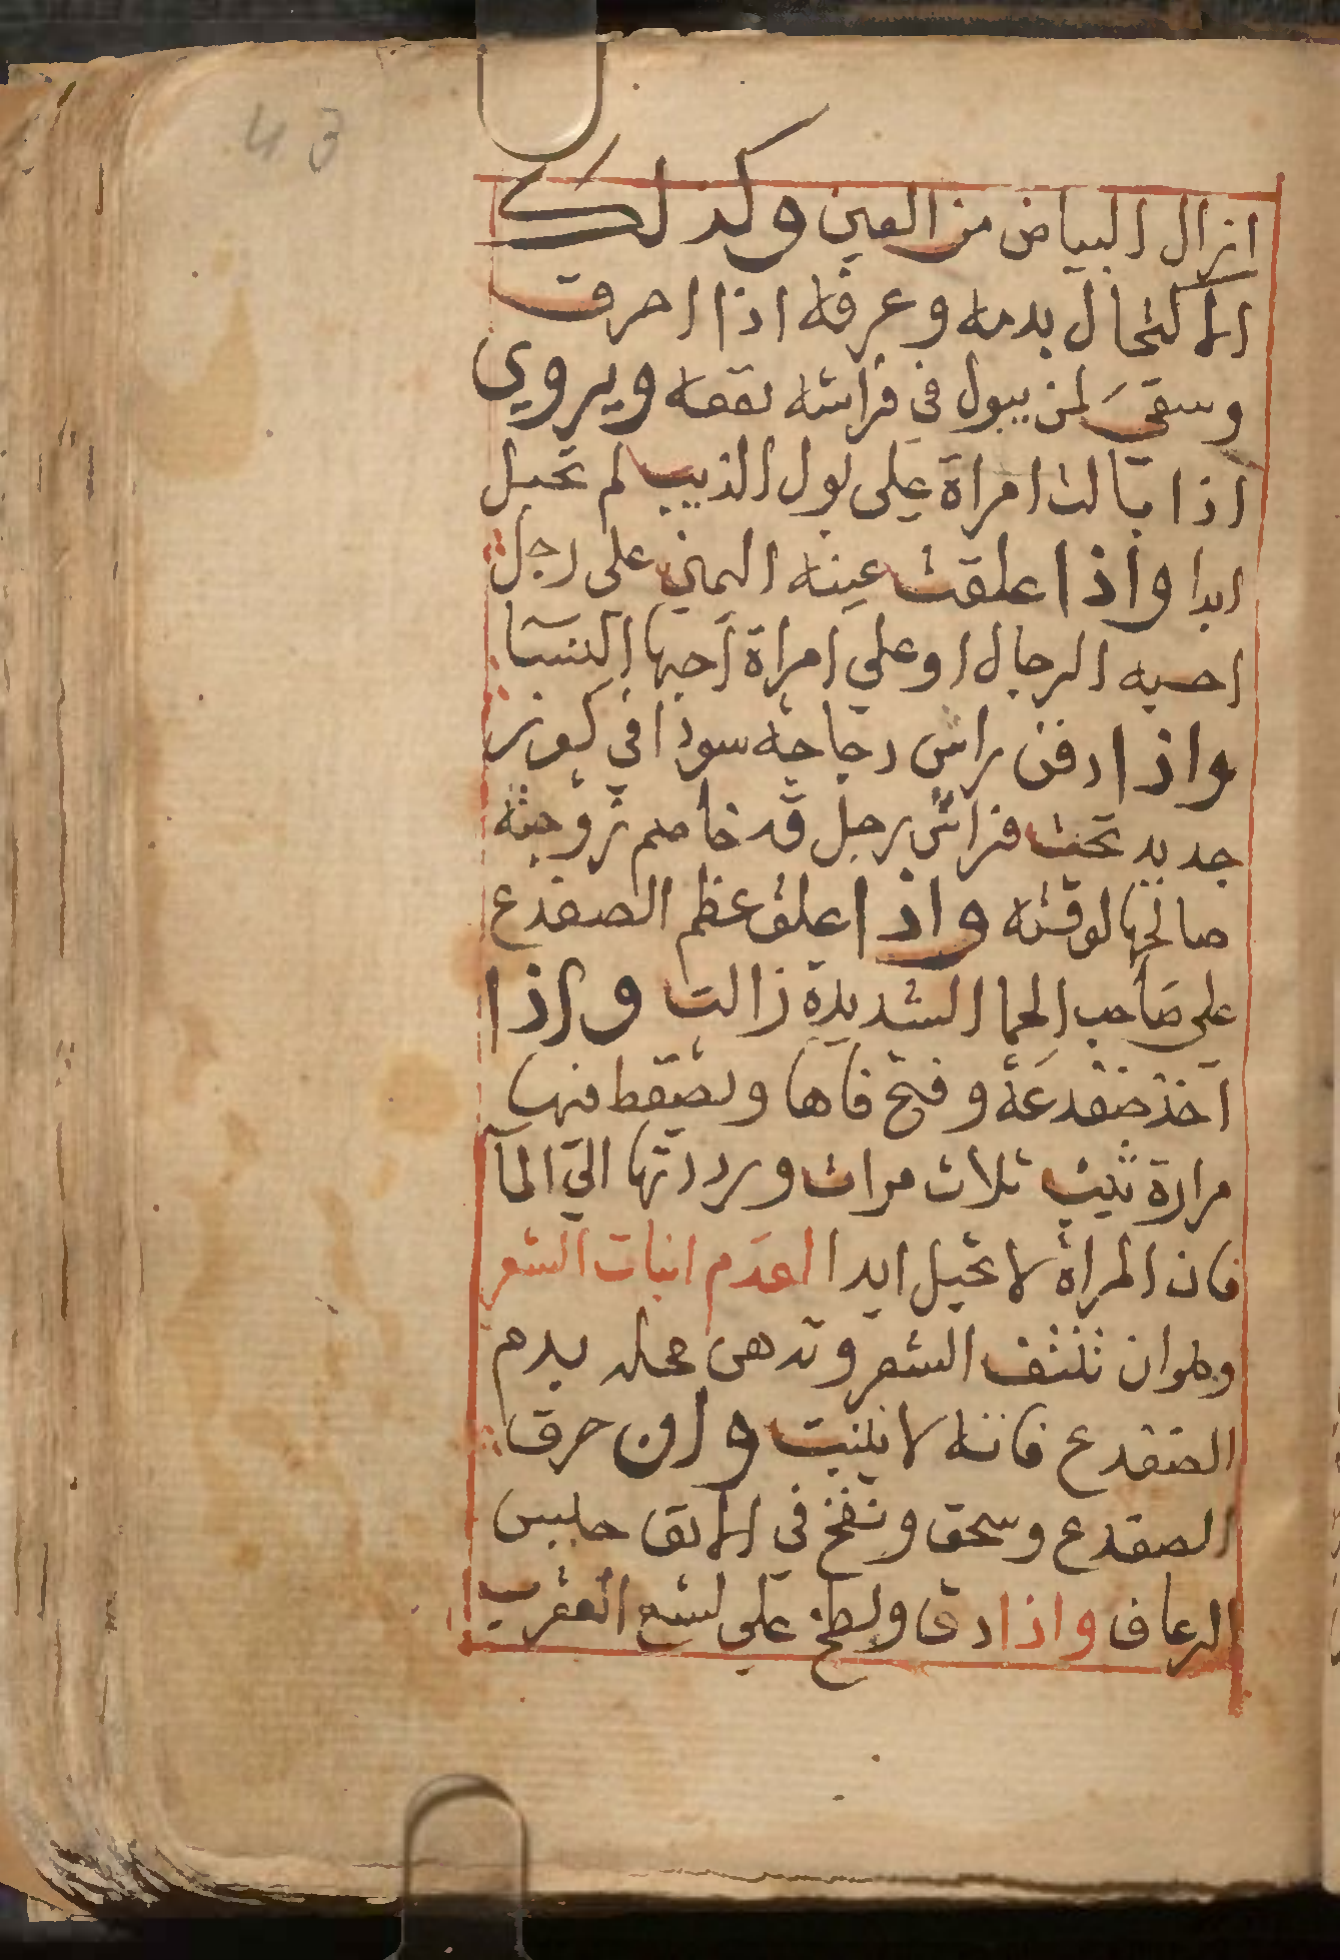 43
ازال البياض من العين وكذلك
الاكتحال بدمه وعرقه اذا احرق
وسقى لمن يبول في فراشه نفعه ويروي
اذا بالت امراة على بول الذيب لم تحبل
ابدا واذا علقت عينه اليمين على رجل
احبه الرجال او على امراة احبها النسا
واذا دفن راس دجاجه سودا في كوز
جديد تحت فراش رجل قد خاصم زوجته
صالحها لوقته واذا علق عظم الضفدع
على صاحب الحما الشديدة زالت واذا
اخذ ضفدعة وفتح فاها وبصقط فيها
مرارة ثيب ثلاث مرات ورددتها الى المآ
فان المراة لا تحبل ابدا لعدم انبات الشعر
وهوان تنتف الشعر وتدهن محله بدم
الضفدع فانه لا ينبت وان حرق
الضفدع وسحق ونفخ في الانف حلبس
الرعاف واذا دق ولطخ على لسع العقرب